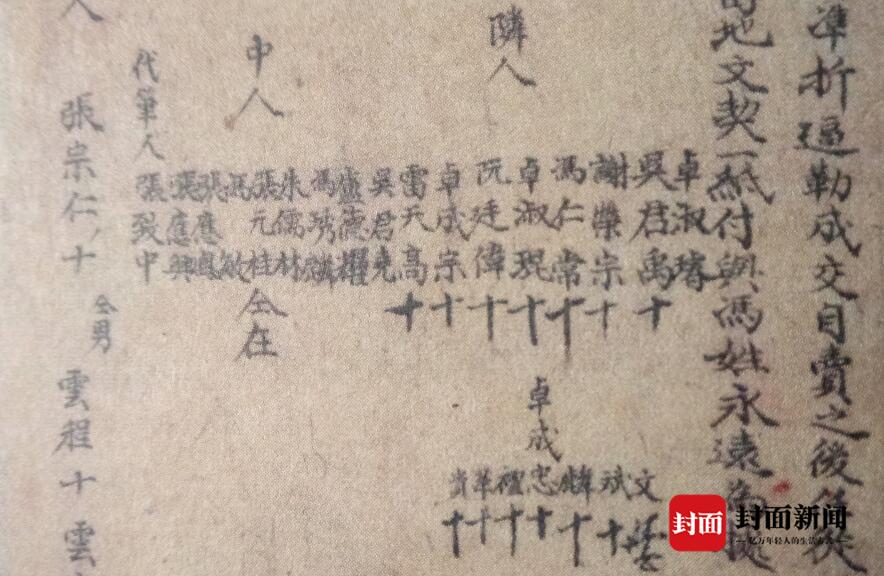 準折逼勒成交自賣之後任從
地文契一紙付與馮姓永遠為據
隣人
卓淑璿
吳君禹十
謝榮宗十
馮仁常十
卓淑琨十
阮廷偉十
卓成宗十
雷天高十
吳君堯
盧德耀
馮琇麟
朱儒林
張元桂
馮敏
仝在
文
斌十
卓成忠十
禮十
華十
貴十
中人
張應興
代筆人 張致中
人 張宗仁十 仝男 雲程十 雲
封面
封面新闻
亿万年轻人的生活方式